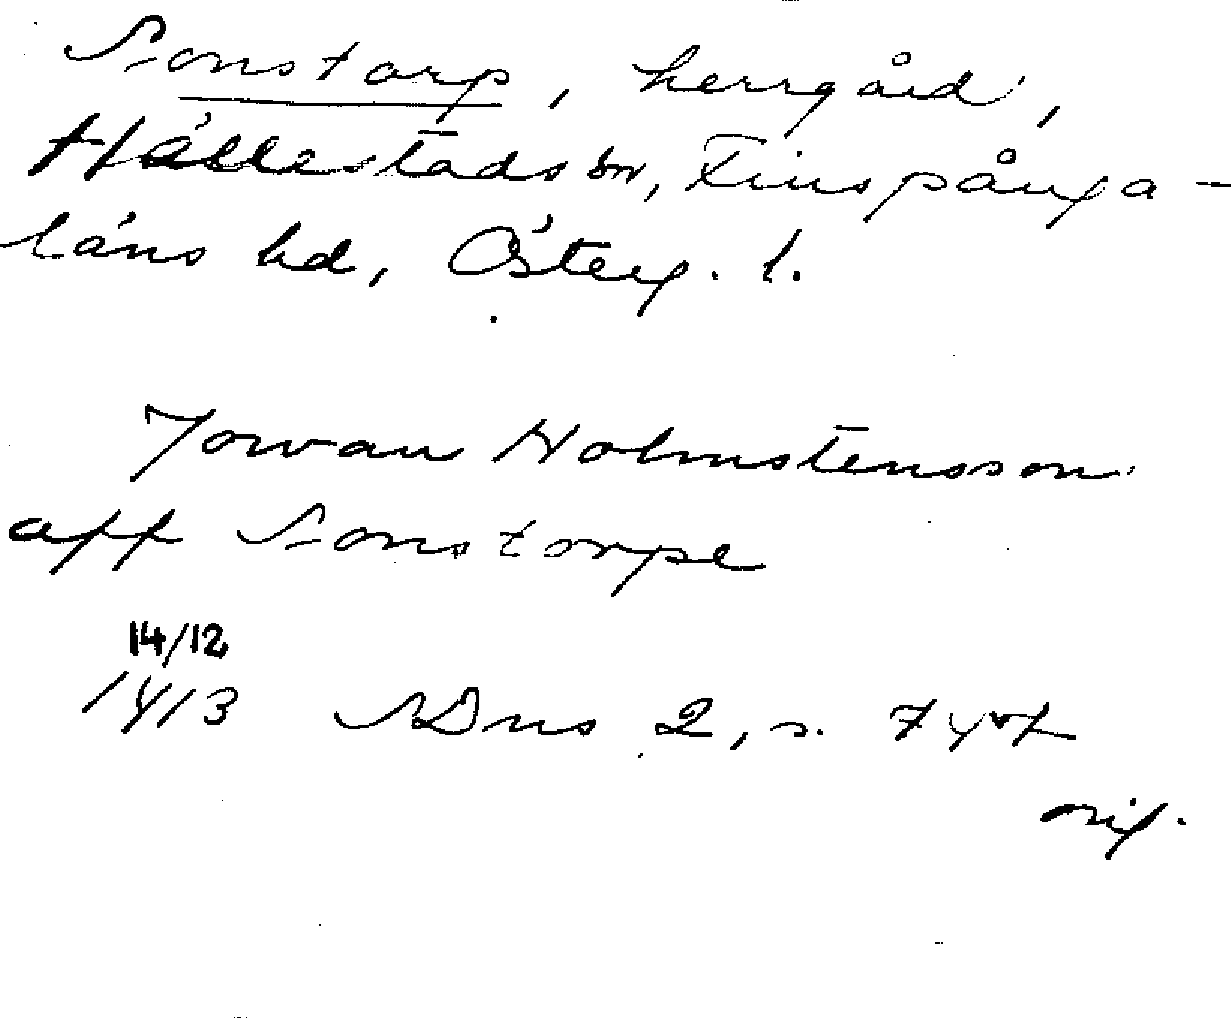 Sonstorp, herrgård,
Hällestads sn, Finspånga-
läns hd, Österg. l.
Jowan Holmstensson
aff Sonstorpe
14/12
1413 SDns 2, s. 747
orig.